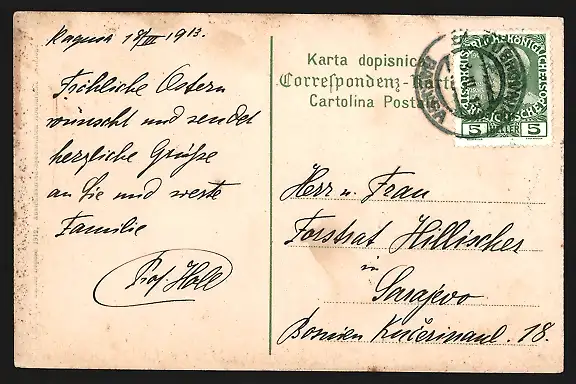 Ragusa 18/III 1913.
Fröhliche Ostern
wünscht und sendet
herzliche Grüße
an Sie und werte
Familie
Prof. Holl
Karta dopisnica
Correspondenz-Karte
Cartolina Postale
5 HELLER 5
Herr u. Frau
Forstrat Hillischer
in
Sarajevo
Bosnien Kućerinaul. 18.